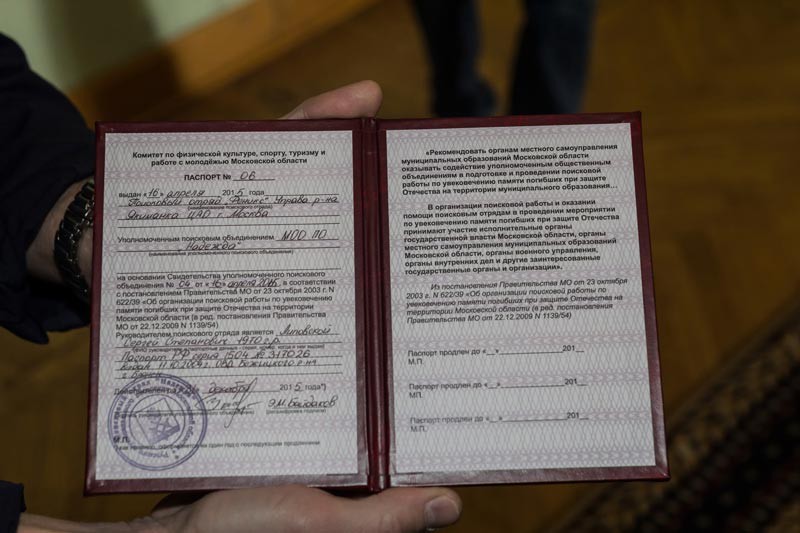 Комитет по физической культуре, спорту, туризму и
работе с молодёжью Московской области
ПАСПОРТ № 06
выдан «16» апреля 2015 года
Поисковый отряд "Феникс" Управа р-на
Якиманка ЦАО г. Москва
Уполномоченным поисковым объединением МОО ПО
"Надежда"
(наименование уполномоченного объединения)
на основании Свидетельства уполномоченного поискового
объединения № 04 от «16» апреля 2015, в соответствии
с постановлением Правительства МО от 23 октября 2003 г. N
622/39 «Об организации поисковой работы по увековечению
памяти погибших при защите Отечества на территории
Московской области» (в ред. постановления Правительства
МО от 22.12.2009 N 1139/54)
Руководителем поискового отряда является
Сергей Степанович 1970 г.р.
Паспорт РФ серия 1504 № 317026
г.
декабря 2015 года*)
Э.М. Байдаков
(расшифровка подписи)
М.П.
«Рекомендовать органам местного самоуправления
муниципальных образований Московской области
оказывать содействие уполномоченным общественным
объединениям в подготовке и проведении поисковой
работы по увековечению памяти погибших при защите
Отечества на территории муниципального образования…
В организации поисковой работы и оказании
помощи поисковым отрядам в проведении мероприятий
по увековечению памяти погибших при защите Отечества
принимают участие исполнительные органы
государственной власти Московской области, органы
местного самоуправления муниципальных образований
Московской области, органы военного управления,
органы внутренних дел и другие заинтересованные
государственные органы и организации».
Из постановления Правительства МО от 23 октября
2003 г. N 622/39 «Об организации поисковой работы по
увековечению памяти погибших при защите Отечества на
территории Московской области» (в ред. постановления
Правительства МО от 22.12.2009 N 1139/54)
Паспорт продлен до «__»______________201__
М.П.
Паспорт продлен до «__»______________201__
М.П.
Паспорт продлен до «__»______________201__
М.П.